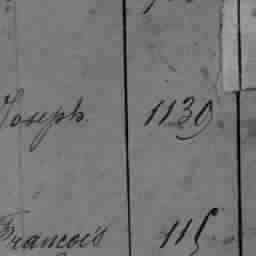 Joseph 1139
François 115